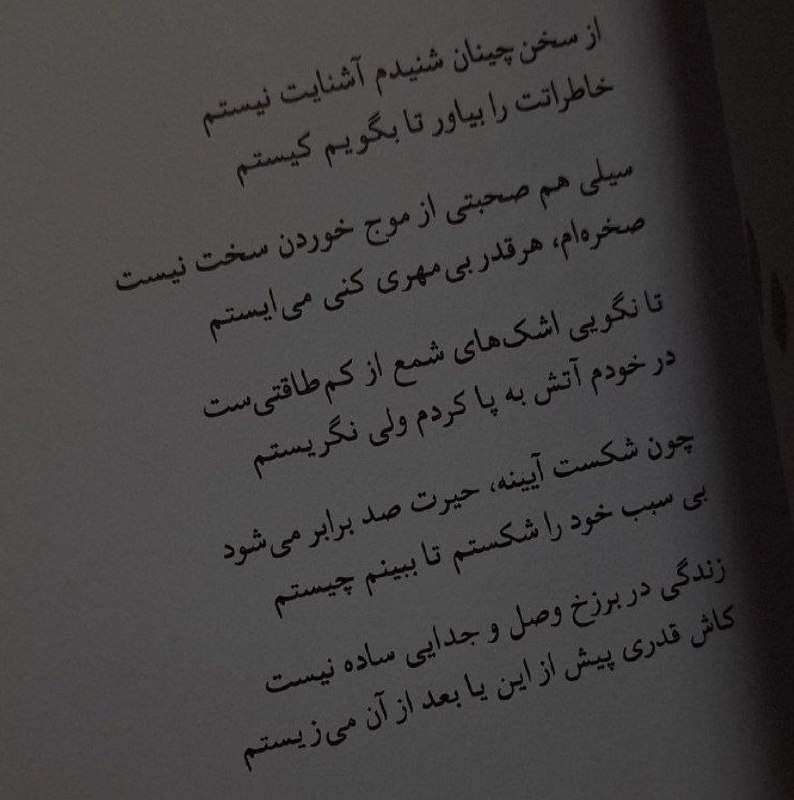 از سخن‌چینان شنیدم آشنایت نیستم
خاطراتت را بیاور تا بگویم کیستم
سیلی هم صحبتی از موج خوردن سخت نیست
صخره‌ام، هرقدر بی‌مهری کنی می‌ایستم
تا نگویی اشک‌های شمع از کم‌طاقتی‌ست
در خودم آتش به پا کردم ولی نگریستم
چون شکست آیینه، حیرت صد برابر می‌شود
بی سبب خود را شکستم تا ببینم چیستم
زندگی در برزخ وصل و جدایی ساده نیست
کاش قدری پیش از این یا بعد از آن می‌زیستم